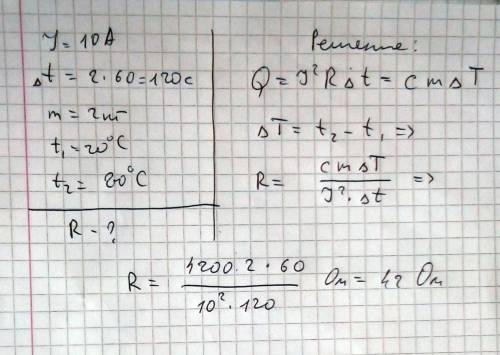 J = 10 A
Δt = 2·60 = 120 c
m = 2 кг
t₁ = 20°C
t₂ = 80°C
R - ?
Решение:
Q = J² R Δt = c m ΔT
ΔT = t₂ - t₁ =>
R = c m ΔT / J² · Δt =>
R = 4200 · 2 · 60 / 10² · 120 Ом = 42 Ом